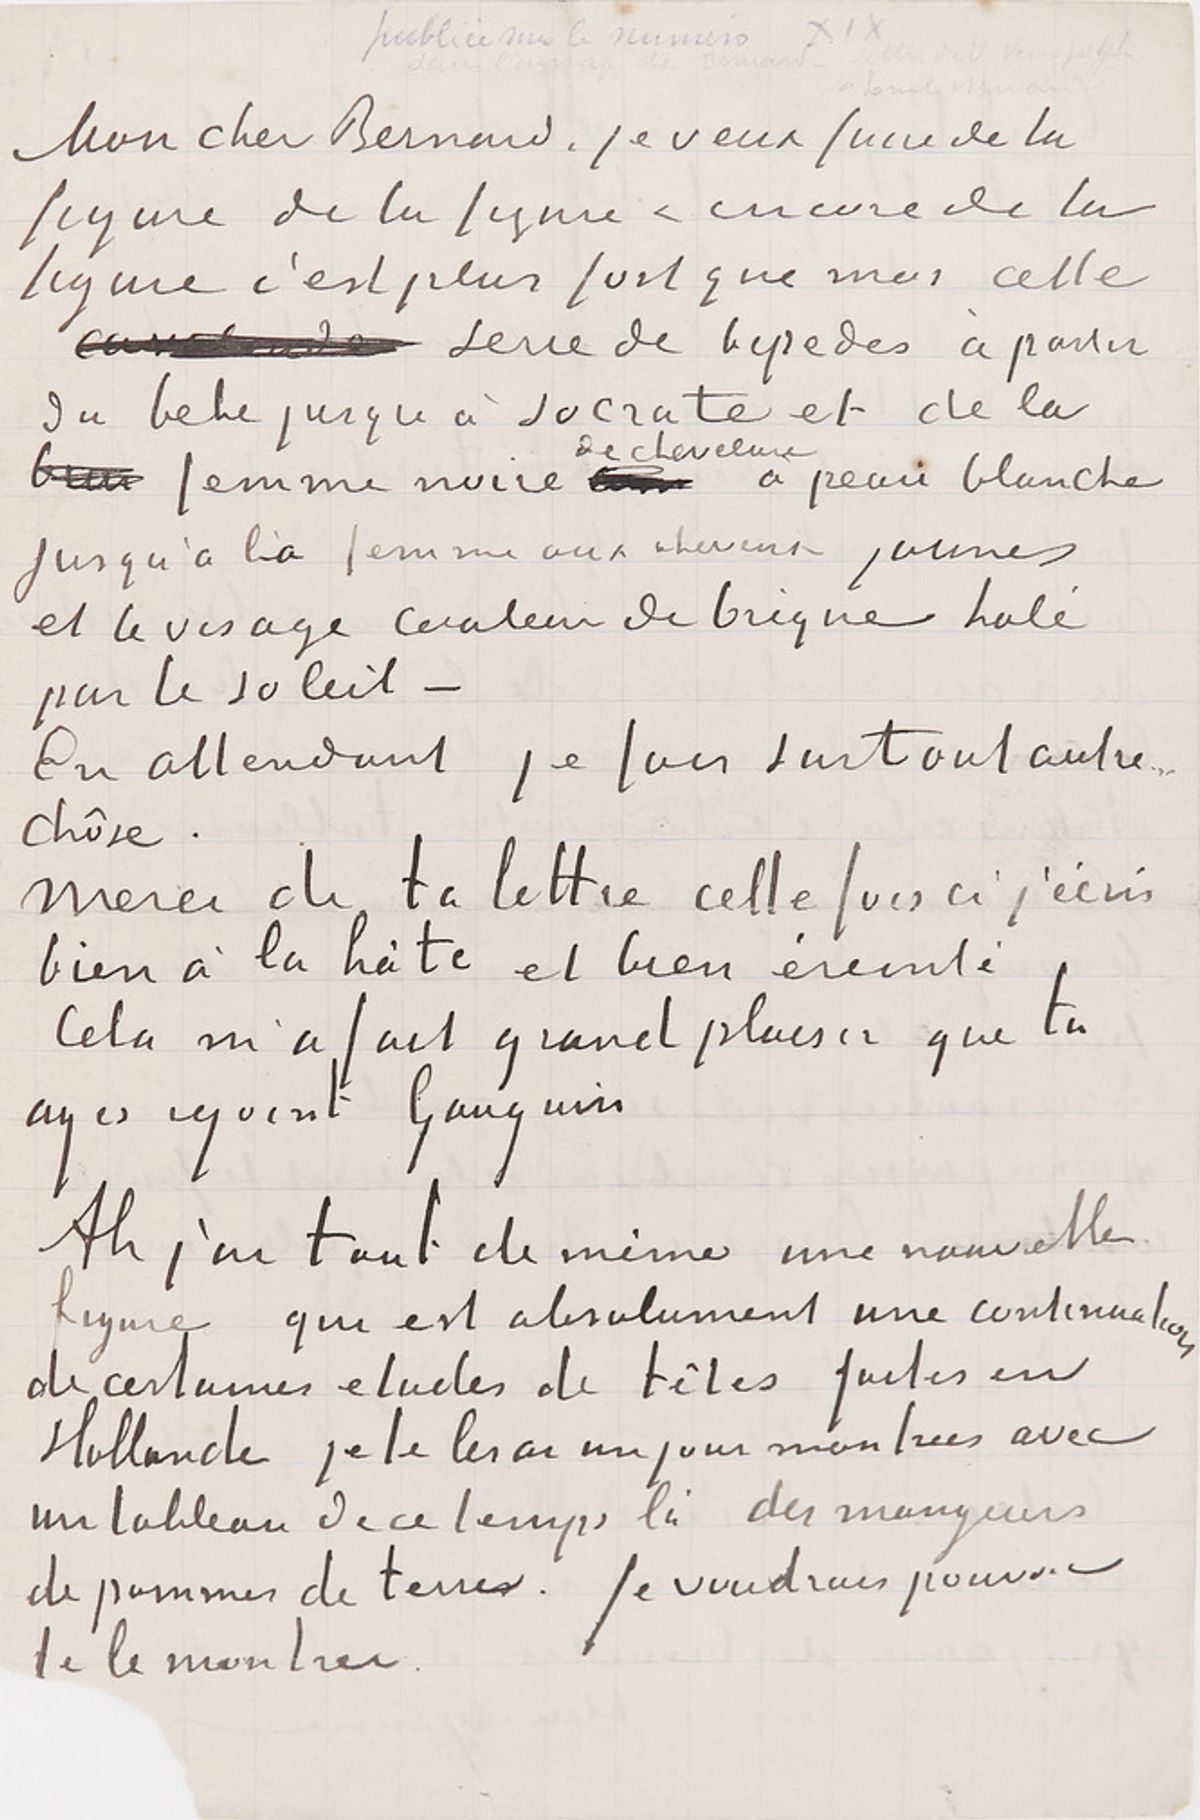 publiée sous le numéro XIX
de Bernard
Mon cher Bernard, je veux faire de la
figure de la figure & encore de la
figure c'est plus fort que moi cette
serie de bipedes à partir
du bebe jusqu'à Socrate et de la
femme noire de chevelure à peau blanche
jusqu'à la femme aux cheveux jaunes
et le visage couleur de brique halé
par le soleil –
En attendant je fais surtout autre
chôse.
Merci de ta lettre cette fois ci j'écris
bien à la hâte et bien éreinté
Cela m'a fait grand plaisir que tu
ayes rejoint Gauguin
Ah j'ai tout de même une nouvelle
figure qui est absolument une continuation
de certaines etudes de têtes faites en
Hollande je te les ai un jour montrees avec
un tableau de ce temps là des mangeurs
de pommes de terres. Je voudrais pouvoir
te le montrer.